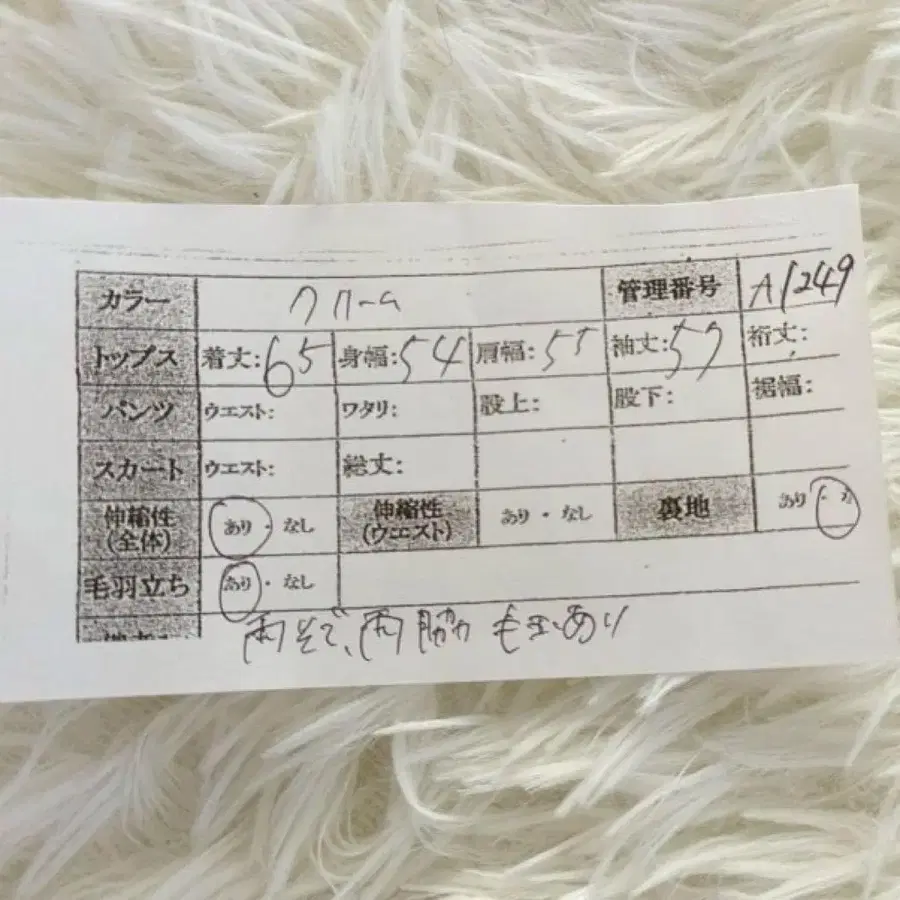 カラー クリーム 管理番号 A1249
トップス 着丈:65 身幅:54 肩幅:55 袖丈:57 裄丈:
パンツ ウエスト: ワタリ: 股上: 股下: 裾幅:
スカート ウエスト: 総丈:
伸縮性(全体) あり・なし 伸縮性(ウエスト) あり・なし 裏地 あり・
毛羽立ち あり・なし
両そで、両脇 毛玉あり